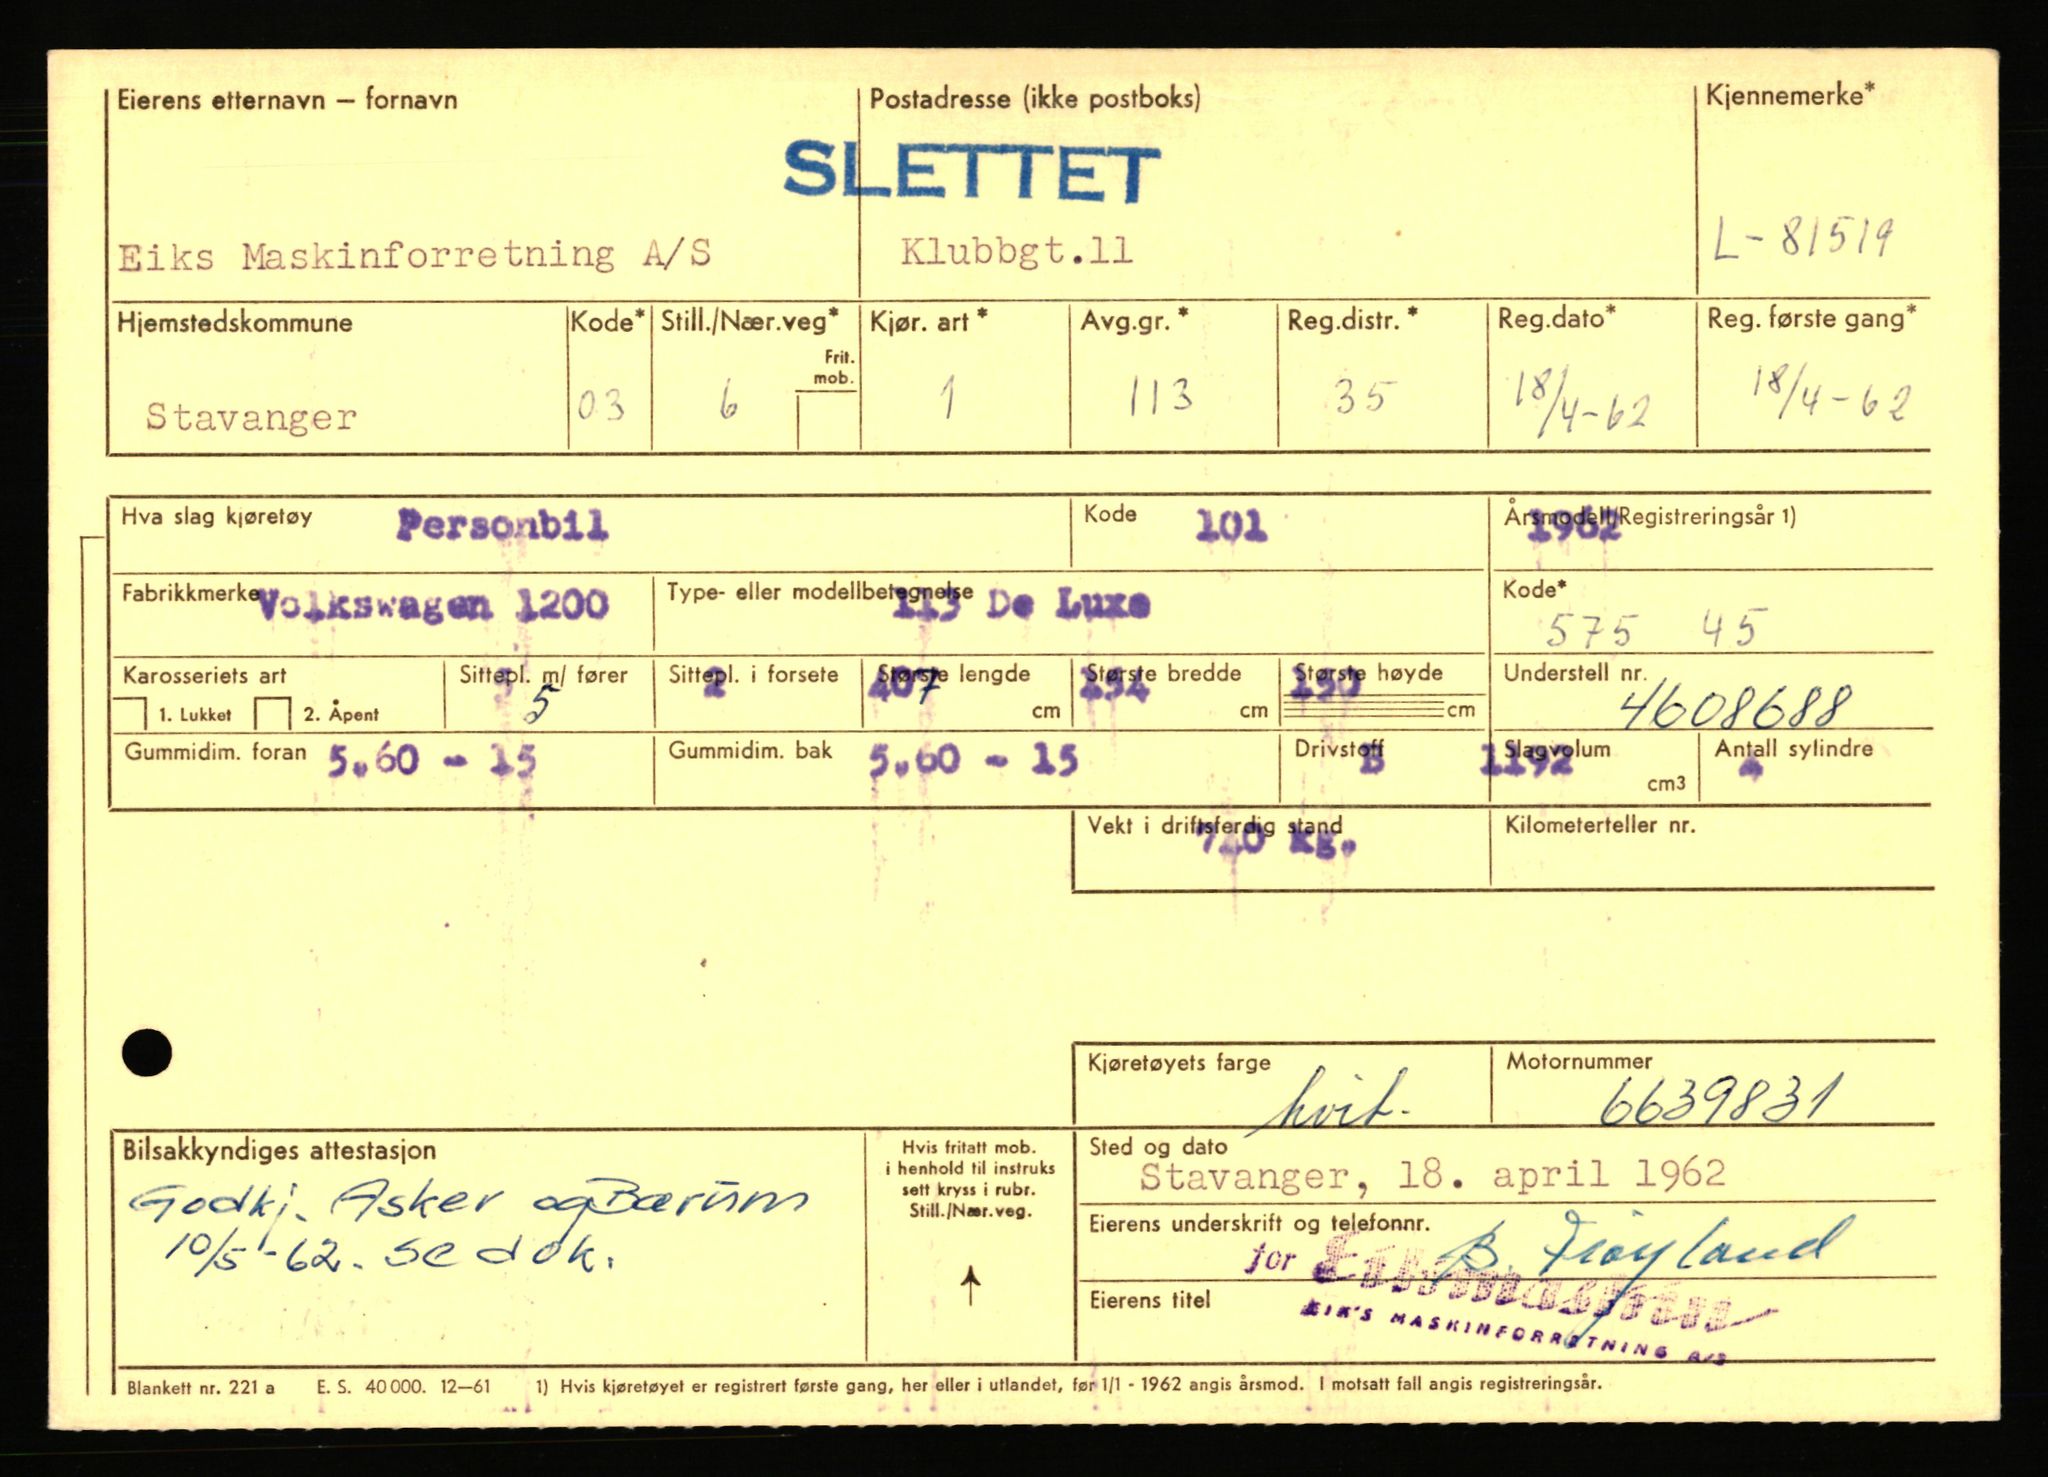 Eierens etternavn — fornavn Postadresse (ikke postboks) Kjennemerke*
SLETTET
Eiks Maskinforretning A/S Klubbgt.11 L-81519
Hjemstedskommune Kode* Still./Nær.veg* Kjør. art* Avg.gr.* Reg.distr.* Reg.dato* Reg. første gang*
Frit.
mob.
Stavanger 03 6 1 113 35 18/4-62 18/4-62
Hva slag kjøretøy Personbil Kode 101 Årsmodell/Registreringsår 1) 1962
Fabrikkmerke Volkswagen 1200 Type- eller modellbetegnelse 113 De Luxe Kode*
575 45
Karosseriets art Sittepl. m/ fører Sittepl. i forsete 2 Største lengde 407 Største bredde 154 Største høyde 150 Understell nr.
1. Lukket 2. Åpent 5 cm cm cm 4608688
Gummidim. foran 5.60 - 15 Gummidim. bak 5.60 - 15 Drivstoff B Slagvolum 1192 Antall sylindre 4
cm3
Vekt i driftsferdig stand kg. Kilometerteller nr.
Kjøretøyets farge Motornummer
hvit. 6639831
Bilsakkyndiges attestasjon
Godkj. Asker og Bærum
10/5-62. se dok.
Hvis fritatt mob.
i henhold til instruks
sett kryss i rubr.
Still./Nær.veg.
Sted og dato
Stavanger, 18. april 1962
Eierens underskrift og telefonnr.
for Eikmaskin B. Frøyland
Eierens titel
EIK'S MASKINFORRETNING A/S
Blankett nr. 221 a E. S. 40 000. 12—61 1) Hvis kjøretøyet er registrert første gang, her eller i utlandet, før 1/1 - 1962 angis årsmod. I motsatt fall angis registreringsår.